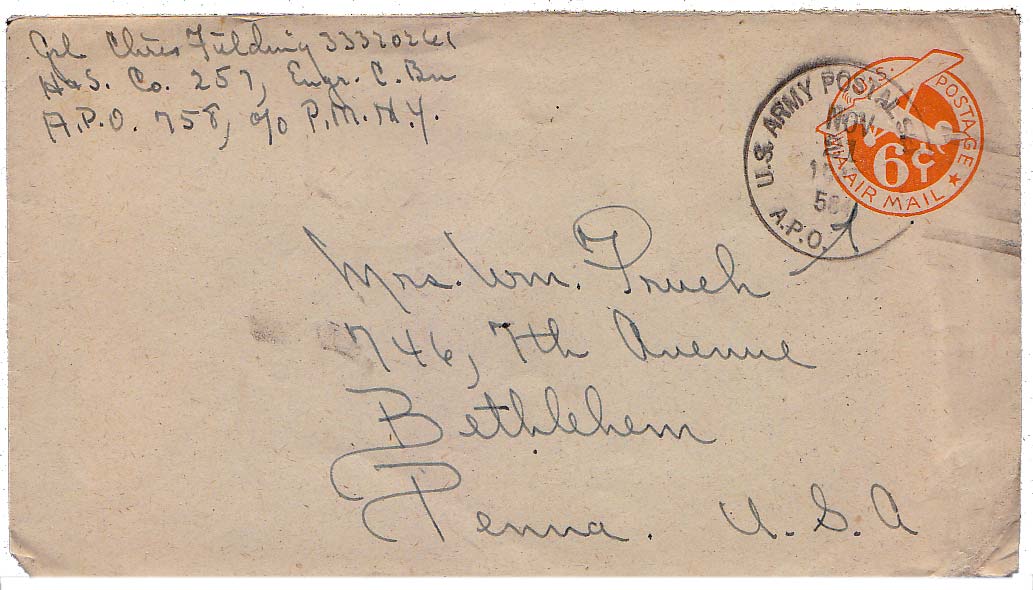 Cpl. Chris Fulding 33320261
H&S. Co. 257, Engr. C. Bn
A.P.O. 758, c/o P.M. N.Y.
U.S. ARMY POSTAL S.
NOV
A.P.O.
POSTAGE
6¢
VIA AIR MAIL
Mrs. Wm. Prueh
746, 7th Avenue
Bethlehem
Penna. U. S. A